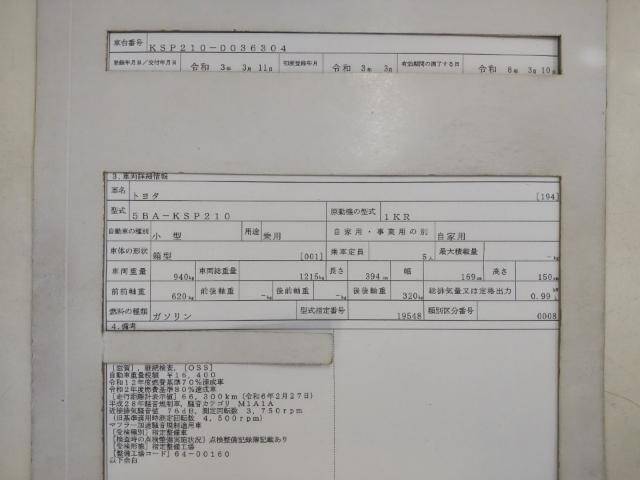 車台番号 KSP210-0036304
登録年月日/交付年月日 令和 3年 3月 11日 初度登録年月 令和 3年 3月 有効期間の満了する日 令和 8年 3月 10日
3.車両詳細情報
車名 トヨタ [194]
型式 5BA-KSP210 原動機の型式 1KR
自動車の種別 小 型 用途 乗用 自家用・事業用の別 自家用
車体の形状 箱型 [001] 乗車定員 5人 最大積載量 -kg
車両重量 940kg 車両総重量 1215kg 長さ 394cm 幅 169cm 高さ 150cm
前前軸重 620kg 前後軸重 -kg 後前軸重 -kg 後後軸重 320kg 総排気量又は定格出力 0.99L
燃料の種類 ガソリン 型式指定番号 19548 類別区分番号 0008
4.備考
[滋賀],継続検査,[OSS]
自動車重量税額 ¥16,400
令和12年度燃費基準70%達成車
令和2年度燃費基準80%達成車
[走行距離計表示値] 66,300km (令和6年2月27日)
平成28年騒音規制車,騒音カテゴリ M1A1A
近接排気騒音値 76dB,測定回転数 3,750rpm
(旧基準適用時測定回転数 4,500rpm)
マフラー加速騒音規制適用車
[受検種別] 指定整備車
[検査時の点検整備実施状況] 点検整備記録簿記載あり
[受検形態] 指定工場
[整備工場コード] 64-00160
以下余白